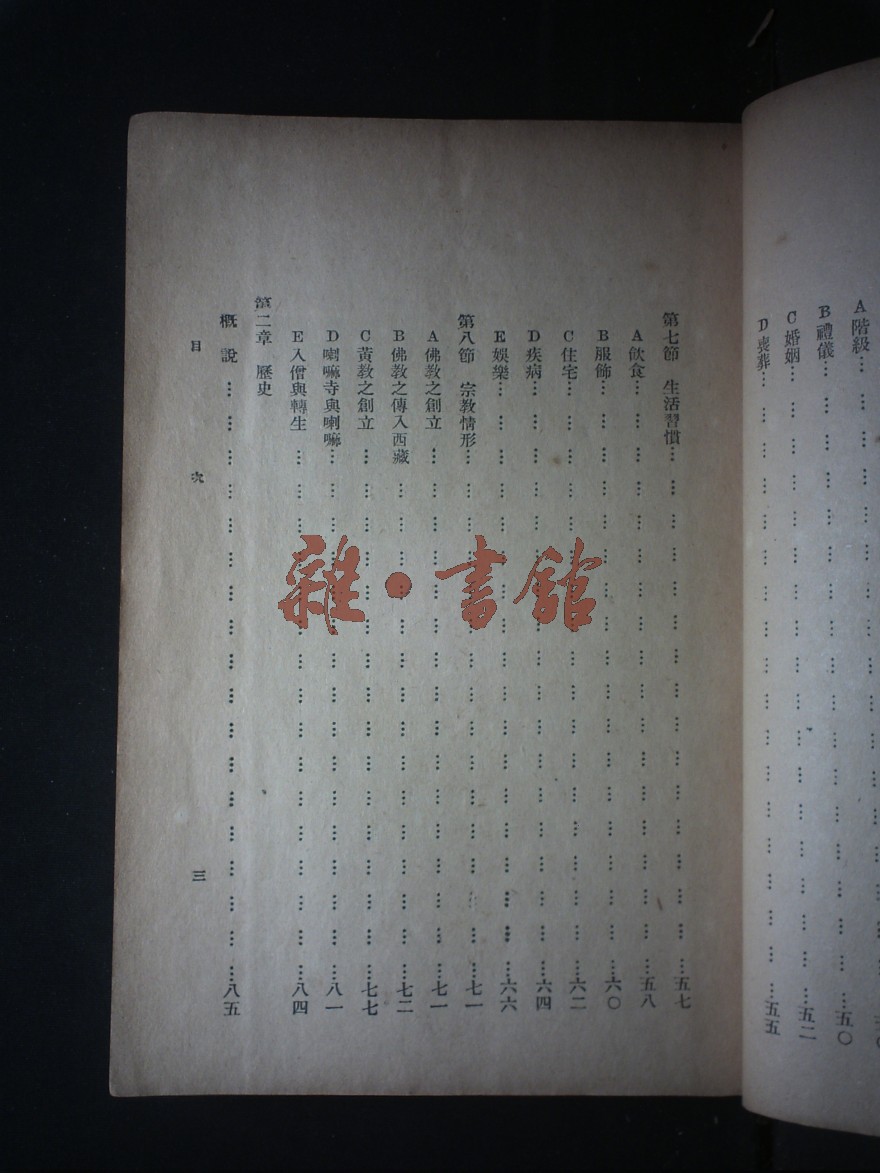 A階級……………………………………五〇
B禮儀……………………………………五〇
C婚姻……………………………………五二
D喪葬……………………………………五五
第七節 生活習慣……………………………………五七
A飲食……………………………………五八
B服飾……………………………………六〇
C住宅……………………………………六二
D疾病……………………………………六四
E娛樂……………………………………六六
第八節 宗教情形……………………………………七一
A佛教之創立……………………………………七一
B佛教之傳入西藏……………………………………七二
C黃教之創立……………………………………七七
D喇嘛寺與喇嘛……………………………………八一
E入僧與轉生……………………………………八四
第二章 歷史
概說……………………………………八五
目次 三
雜·書館